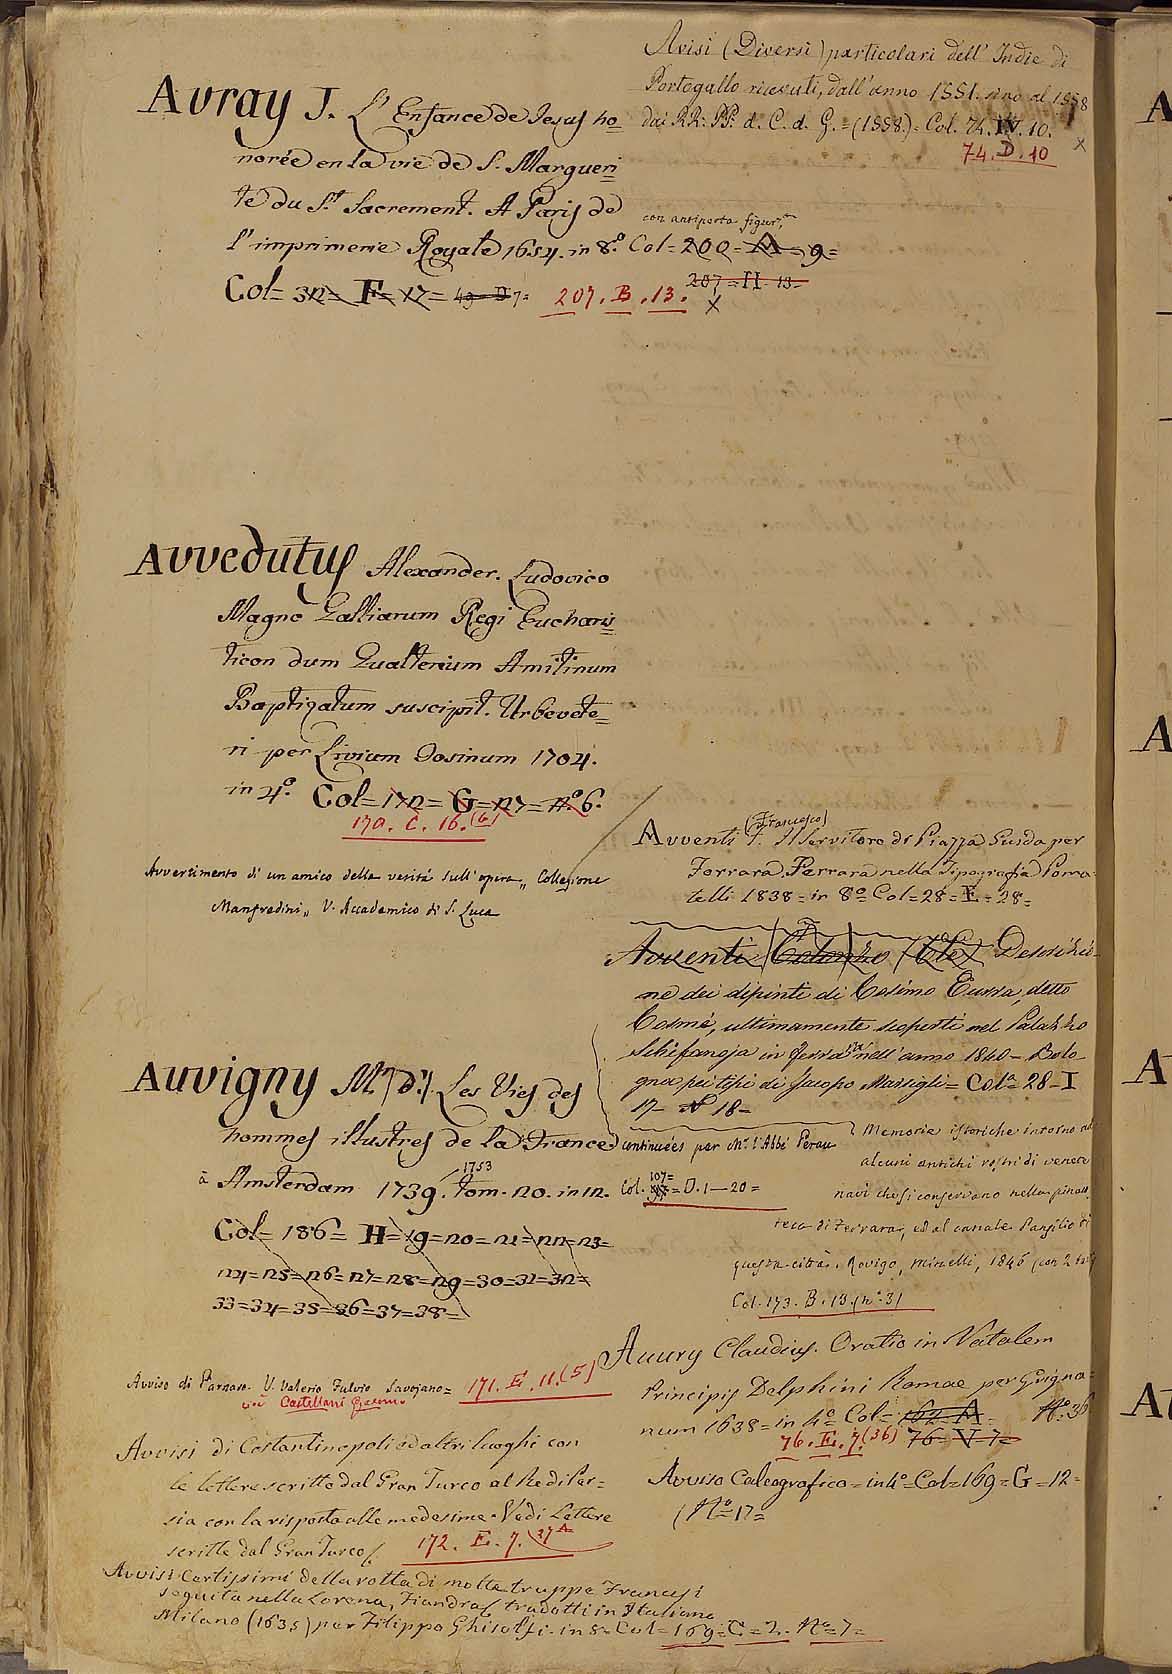 Avray J. L'Enfance de Jesus ho=
norée en la vie de S. Margueri=
te du S.t Sacrement. A Paris de
l'imprimerie Royale 1654. in 8.º
Col= 312= F= 17= 49= D 7= 207. B. 13.
Avisi (Diversi) particolari dell' Indie di
Portogallo ricevuti, dall'anno 1551. sino al 1558
dai RR: PP: d. C. d. G. =(1558.)= Col. 74. IV. 10.
74. D. 10
x
con antiporta figur.ta
Col= 200= A= 9=
207= H. 13=
x
Avvedutus Alexander. Ludovico
Magno Galliarum Regi Eucharis=
ticon dum Gualterium Amitinum
Baptizatum suscipit. Urbevete=
ri per Livium Dosinum 1704.
in 4.º Col= 172= G= 127= N.º 6.
170. C. 16. (6)
Avvertimento di un amico della verità sull'opera „ Collezione
Manfredini „ V. Accademico di S. Luca
(Francesco)
Avventi F. Il Servitore di Piazza Guida per
Ferrara. Ferrara nella Tipografia Poma-
telli 1838= in 8.º Col=28= E= 28=
Avventi Descrizio-
ne dei dipinti di Cosimo Turra, detto
Cosmé, ultimamente scoperti nel Palazzo
Schifanoja in Ferrara nell'anno 1840- Bolo-
gna pei tipi di Jacopo Marsigli= Col.= 28-I
17- N 18-
Auvigny M.r (d'). Les Vies des
hommes illustres de la France continuées par M.r l'Abbé Perau
1753
à Amsterdam 1739. tom. 20. in 12. Col. 107= D. 1—20=
Col= 186= H= 19=20=21=22=23=
24=25=26=27=28=29=30=31=32=
33=34=35=36=37=38=
Memorie istoriche intorno ad
alcuni antichi rostri di venete
navi che si conservano nella pinaco
teca di Ferrara, ed al canale Panfilio di
questa città. Rovigo, Minelli, 1846 (con 2 tav)
Col. 173. B. 13. (n.º 3)
Auury Claudius. Oratio in Natalem
Principis Delphini Romae per Grigna=
num 1638= in 4.º Col= 162= A= N.º 36
76. E. 7. (36) 76= V= 7=
Avviso Calcografico= in 4.º= Col= 169= G= 12=
(N.º= 17=
Avviso di Parnaso. V. Valerio Fulvio Savojano= 171. E. 11. (5)
Castellani
Avvisi di Costantinopoli ed altri luoghi con
le lettere scritte dal Gran Turco al Re di Per=
sia con la risposta alle medesime. Vedi Lettere
scritte dal Gran Turco. 172. E. 7. 37A
Avvisi Certissimi della rotta di molte truppe Francesi
seguita nella Lorena, Fiandra tradotti in Italiano
Milano (1635) per Filippo Ghisolfi. in 8.º Col= 169= C= 2. N.º= 7=